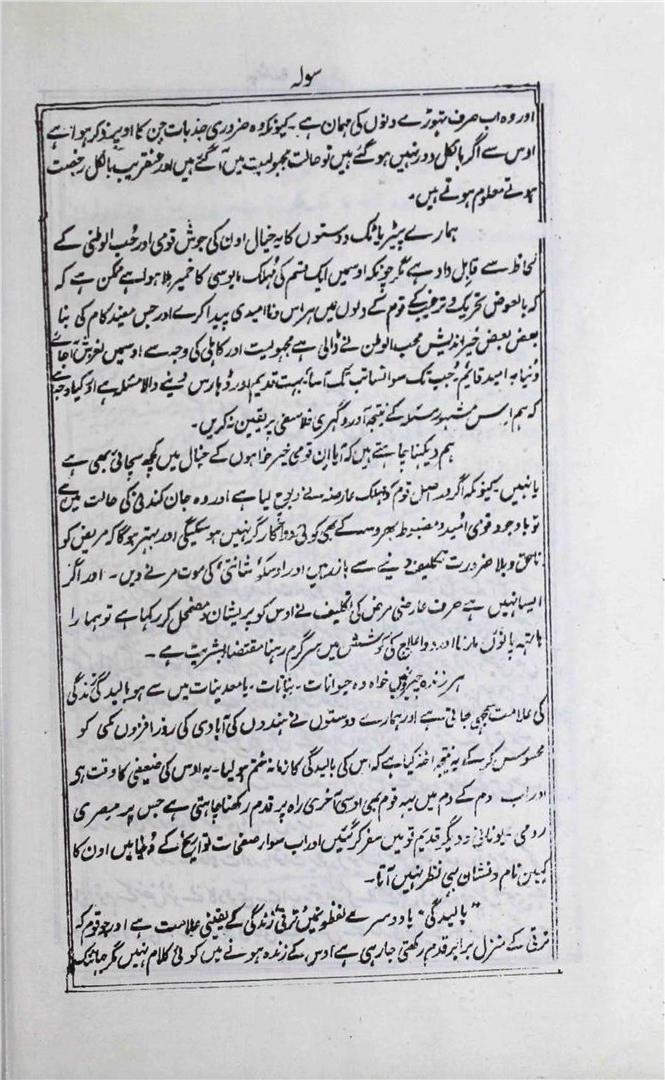 سولہ
اور وہ اب صرف تہوڑے دنوں کی مہمان ہے ۔ کیونکہ وہ ضروری جذبات جن کا اوپر ذکر ہوا ہے
اوس سے اگر بالکل دور نہیں ہو گئے ہیں تو حالت مجہولیت میں آ گئے ہیں اور عنقریب بالکل رخصت
ہوتے معلوم ہوتے ہیں ۔
ہمارے پیٹریاٹک دوستوں کا یہ خیال اون کی جوش قومی اور حُب الوطنی کے
لحاظ سے قابل داد ہے مگر چونکہ اوسمیں ایک قسم کی مُہلک مایوسی کا خمیر ملا ہوا ہے ممکن ہے کہ
کہ بالعوض تحریک و ترغیب کے قوم کے دلوں میں ہراس و ناامیدی پیدا کرے اور جس مفید کام کی بنا
بعض بعض خیر اندیش محب الوطن نے ڈالی ہے مجہولیت اور کاہلی کی وجہ سے اوسمیں لغزش آ جائے
دُنیا بہ امید قائم یُجب تک سوانسا تب تک آسا بہت قدیم اور ڈہارس دینے والا مسئلہ ہے اور کیا وجہ ہے
کہ ہم اس مشہور مسئلہ کے نتیجہ آور و گہری فلاسفی پر یقین نہ کریں ۔
ہم دیکہنا چاہتے ہیں کہ آیا ان قومی خیر خواہوں کے خیال میں کچھ سچائی بھی ہے
یا نہیں ۔ کیونکہ اگر دراصل قوم کو مہلک عارضہ نے دبوچ لیا ہے اور وہ جان کندنی کی حالت میں ہے
تو باوجود قوی اُمید و مضبوط بھروسہ کے بھی کوئی دوا کارگر نہیں ہو سکیگی اور بہتر ہوگا کہ مریض کو
ناحق و بلا ضرورت تکلیف دینے سے باز رہیں اور اوسکو ’شانتی‘ کی موت مرنے دیں ۔ اور اگر
ایسا نہیں ہے صرف عارضی مرض کی تکلیف نے اوس کو پریشان و مضمحل کر رکہا ہے تو ہمارا
ہاتہہ پانوں مارنا اور دوا علاج کی کوشش میں سرگرم رہنا مقتضائے بشریت ہے ۔
ہر زندہ چیز میں خواہ وہ حیوانات ۔ نباتات ۔ یا معدنیات میں سے ہو بالیدگی زندگی
کی علامت سمجہی جاتی ہے اور ہمارے دوستوں نے ہندوں کی آبادی کی روز افزوں کمی کو
محسوس کر کے یہ نتیجہ اخذ کیا ہے کہ اس کی بالیدگی کا زمانہ ختم ہو لیا ۔ یہ اوس کی ضعیفی کا وقت ہو
اور اب دم کے دم میں یہہ قوم بھی اوسی آخری راہ پر قدم رکھنا چاہتی ہے جس پر مصری
رومی ۔ یونانی و دیگر قدیم قومیں سفر کر گئیں اور اب سوا صفحات تواریخ کے دُنیا میں اون کا
کہیں نام و نشان بہی نظر نہیں آتا ۔
”بالیدگی“ یا دوسرے لفظوں میں ”ترقی“ زندگی کے یقینی علامت ہے اور جو قوم کہ
ترقی کے منزل پر برابر قدم رکھتی جا رہی ہے اوس کے زندہ ہونے میں کوئی کلام نہیں مگر جہانتک